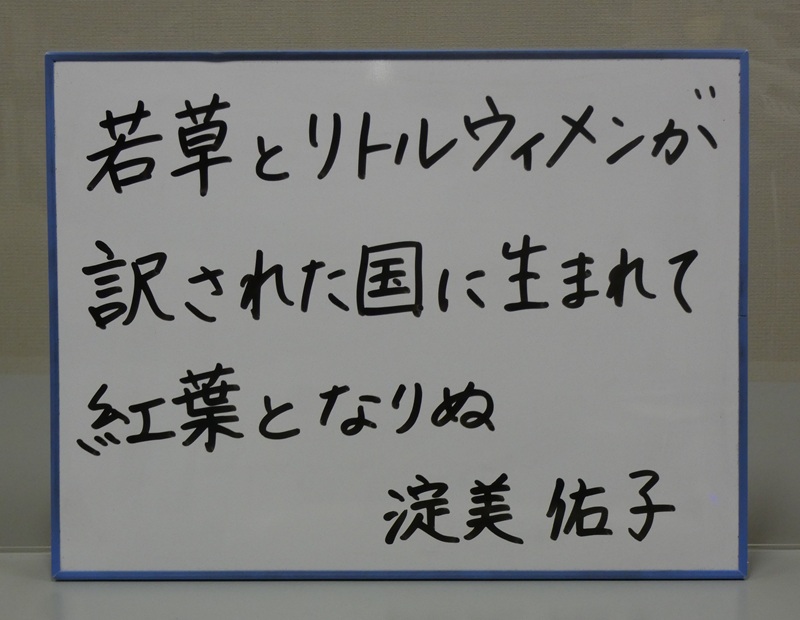 若草とリトルウィメンが
訳された国に生まれて
紅葉となりぬ
淀美 佑子